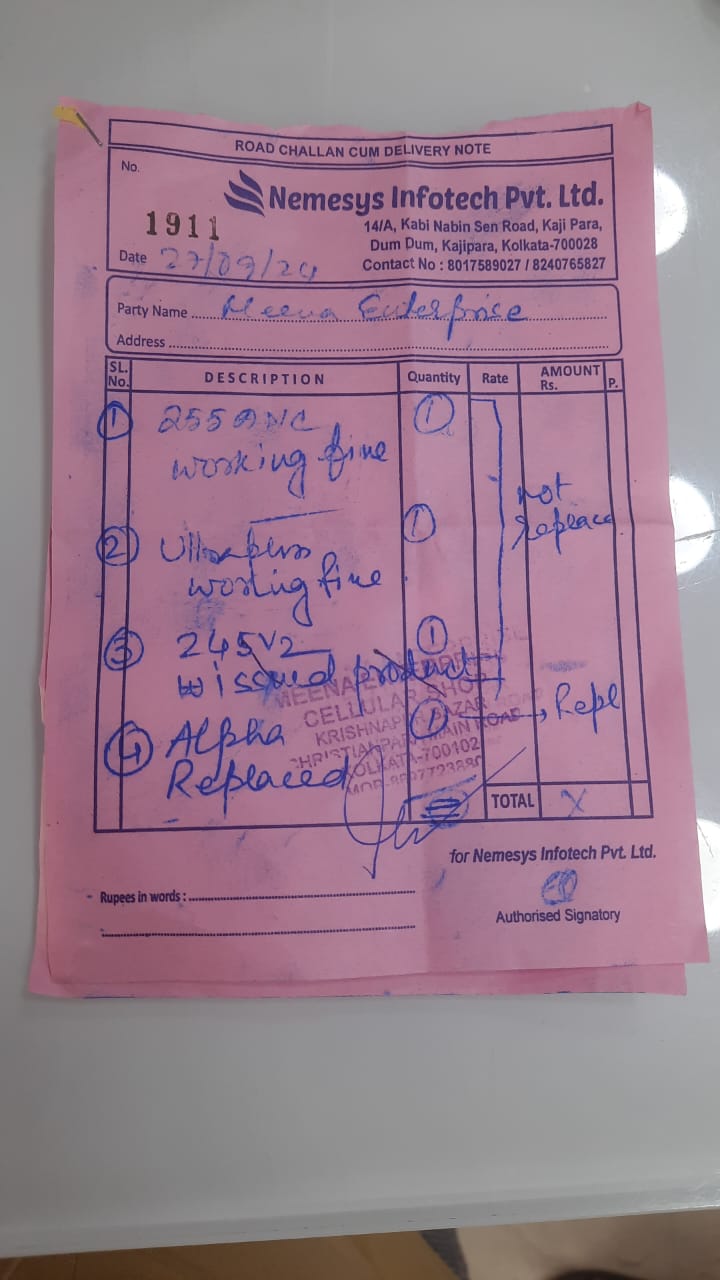 ROAD CHALLAN CUM DELIVERY NOTE
No.
1911
Nemesys Infotech Pvt. Ltd.
14/A, Kabi Nabin Sen Road, Kaji Para,
Dum Dum, Kajipara, Kolkata-700028
Contact No : 8017589027 / 8240765827
Date 27/09/24
Party Name Meena Enterprise
Address
SL. No. DESCRIPTION Quantity Rate AMOUNT Rs. P.
① ①
working fine
not
Replace
② Ultraplus ①
working fine
③ 245V2 ①
issued product
④ Alpha ① → Repl
Replaced
CELLULAR SHOP
KRISHNAPUR BAZAR ROAD
CHRISTIANPARA MAIN ROAD
KOLKATA-700102
TOTAL X
for Nemesys Infotech Pvt. Ltd.
Rupees in words :
Authorised Signatory